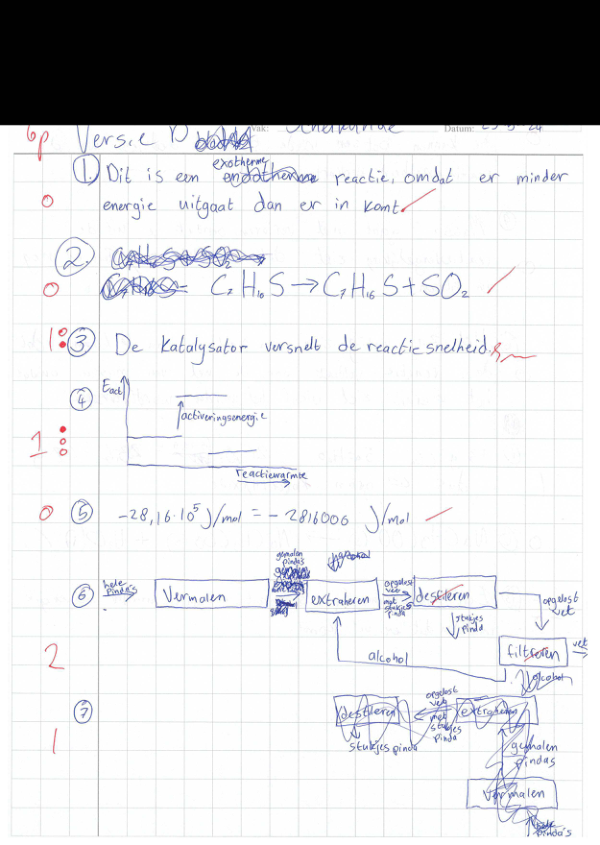 6p Versie D vak: Scheikunde Datum: 23-5-24
① Dit is een exotherme reactie, omdat er minder
0 energie uitgaat dan er in komt.
②
0 C₇ H₁₆ S → C₇ H₁₆ S + SO₂
1 ③ De Katalysator versnelt de reactiesnelheid.
④ Eact
activeringsenergie
1
reactiewarmte
0 ⑤ -28,16·10⁵ J/mol = - 2816000 J/mol
gemalen
pinda's
⑥ hele pinda's Vermalen extraheren opgelost vet met stukjes pinda destileren
opgelost vet
stukjes pinda
2 alcohol filtreren vet
alcohol
⑦ destileren opgelost vet met stukjes pinda extraheren
1 stukjes pinda gemalen pindas
vermalen
hele pinda's